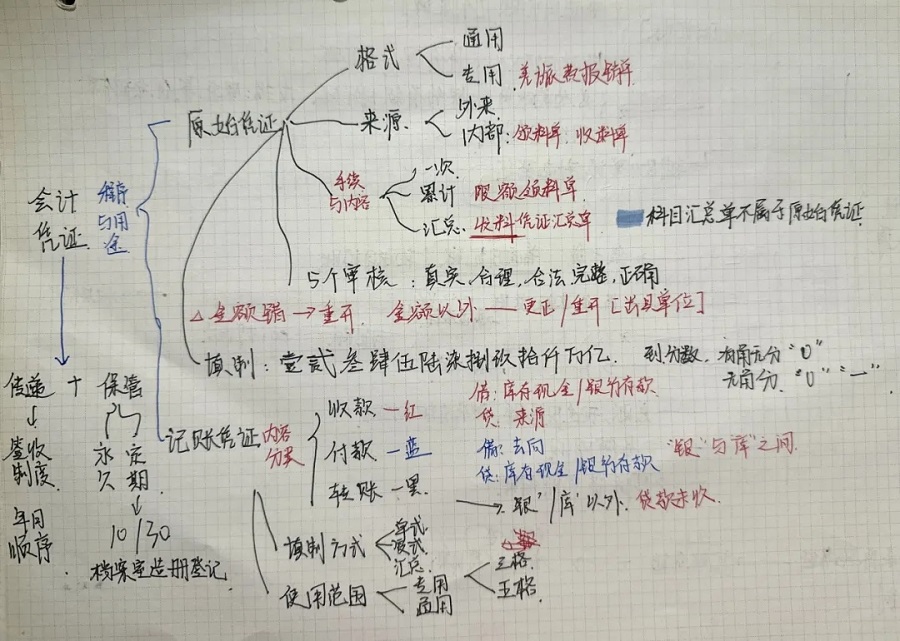 格式
通用
专用 差旅费报销单
原始凭证
来源
外来
内部: 领料单 收料单
手续
与内容
一次
累计 限额领料单
汇总. 收料凭证汇总单
科目汇总单不属于原始凭证
会计
凭证
程序
与用途
5个审核: 真实, 合理, 合法, 完整, 正确
△ 金额错→重开 金额以外——更正/重开[出具单位]
填制: 壹贰叁肆伍陆柒捌玖拾仟万亿. 到分数. 有角无分“0”
无角分. “0”“—”
传递 + 保管
↓
签收
制度
年月
顺序
永久
定期
↓
10/30
档案室造册登记
记账凭证
内容
分类
收款—红
借: 库存现金/银行存款
贷: 来源
付款—蓝
借: 去向
贷: 库存现金/银行存款
“银”与“库”之间
转账—黑
→“银”/“库”以外. 贷款未收
填制方式
单式
复式
汇总
使用范围
专用
通用
三格
五格